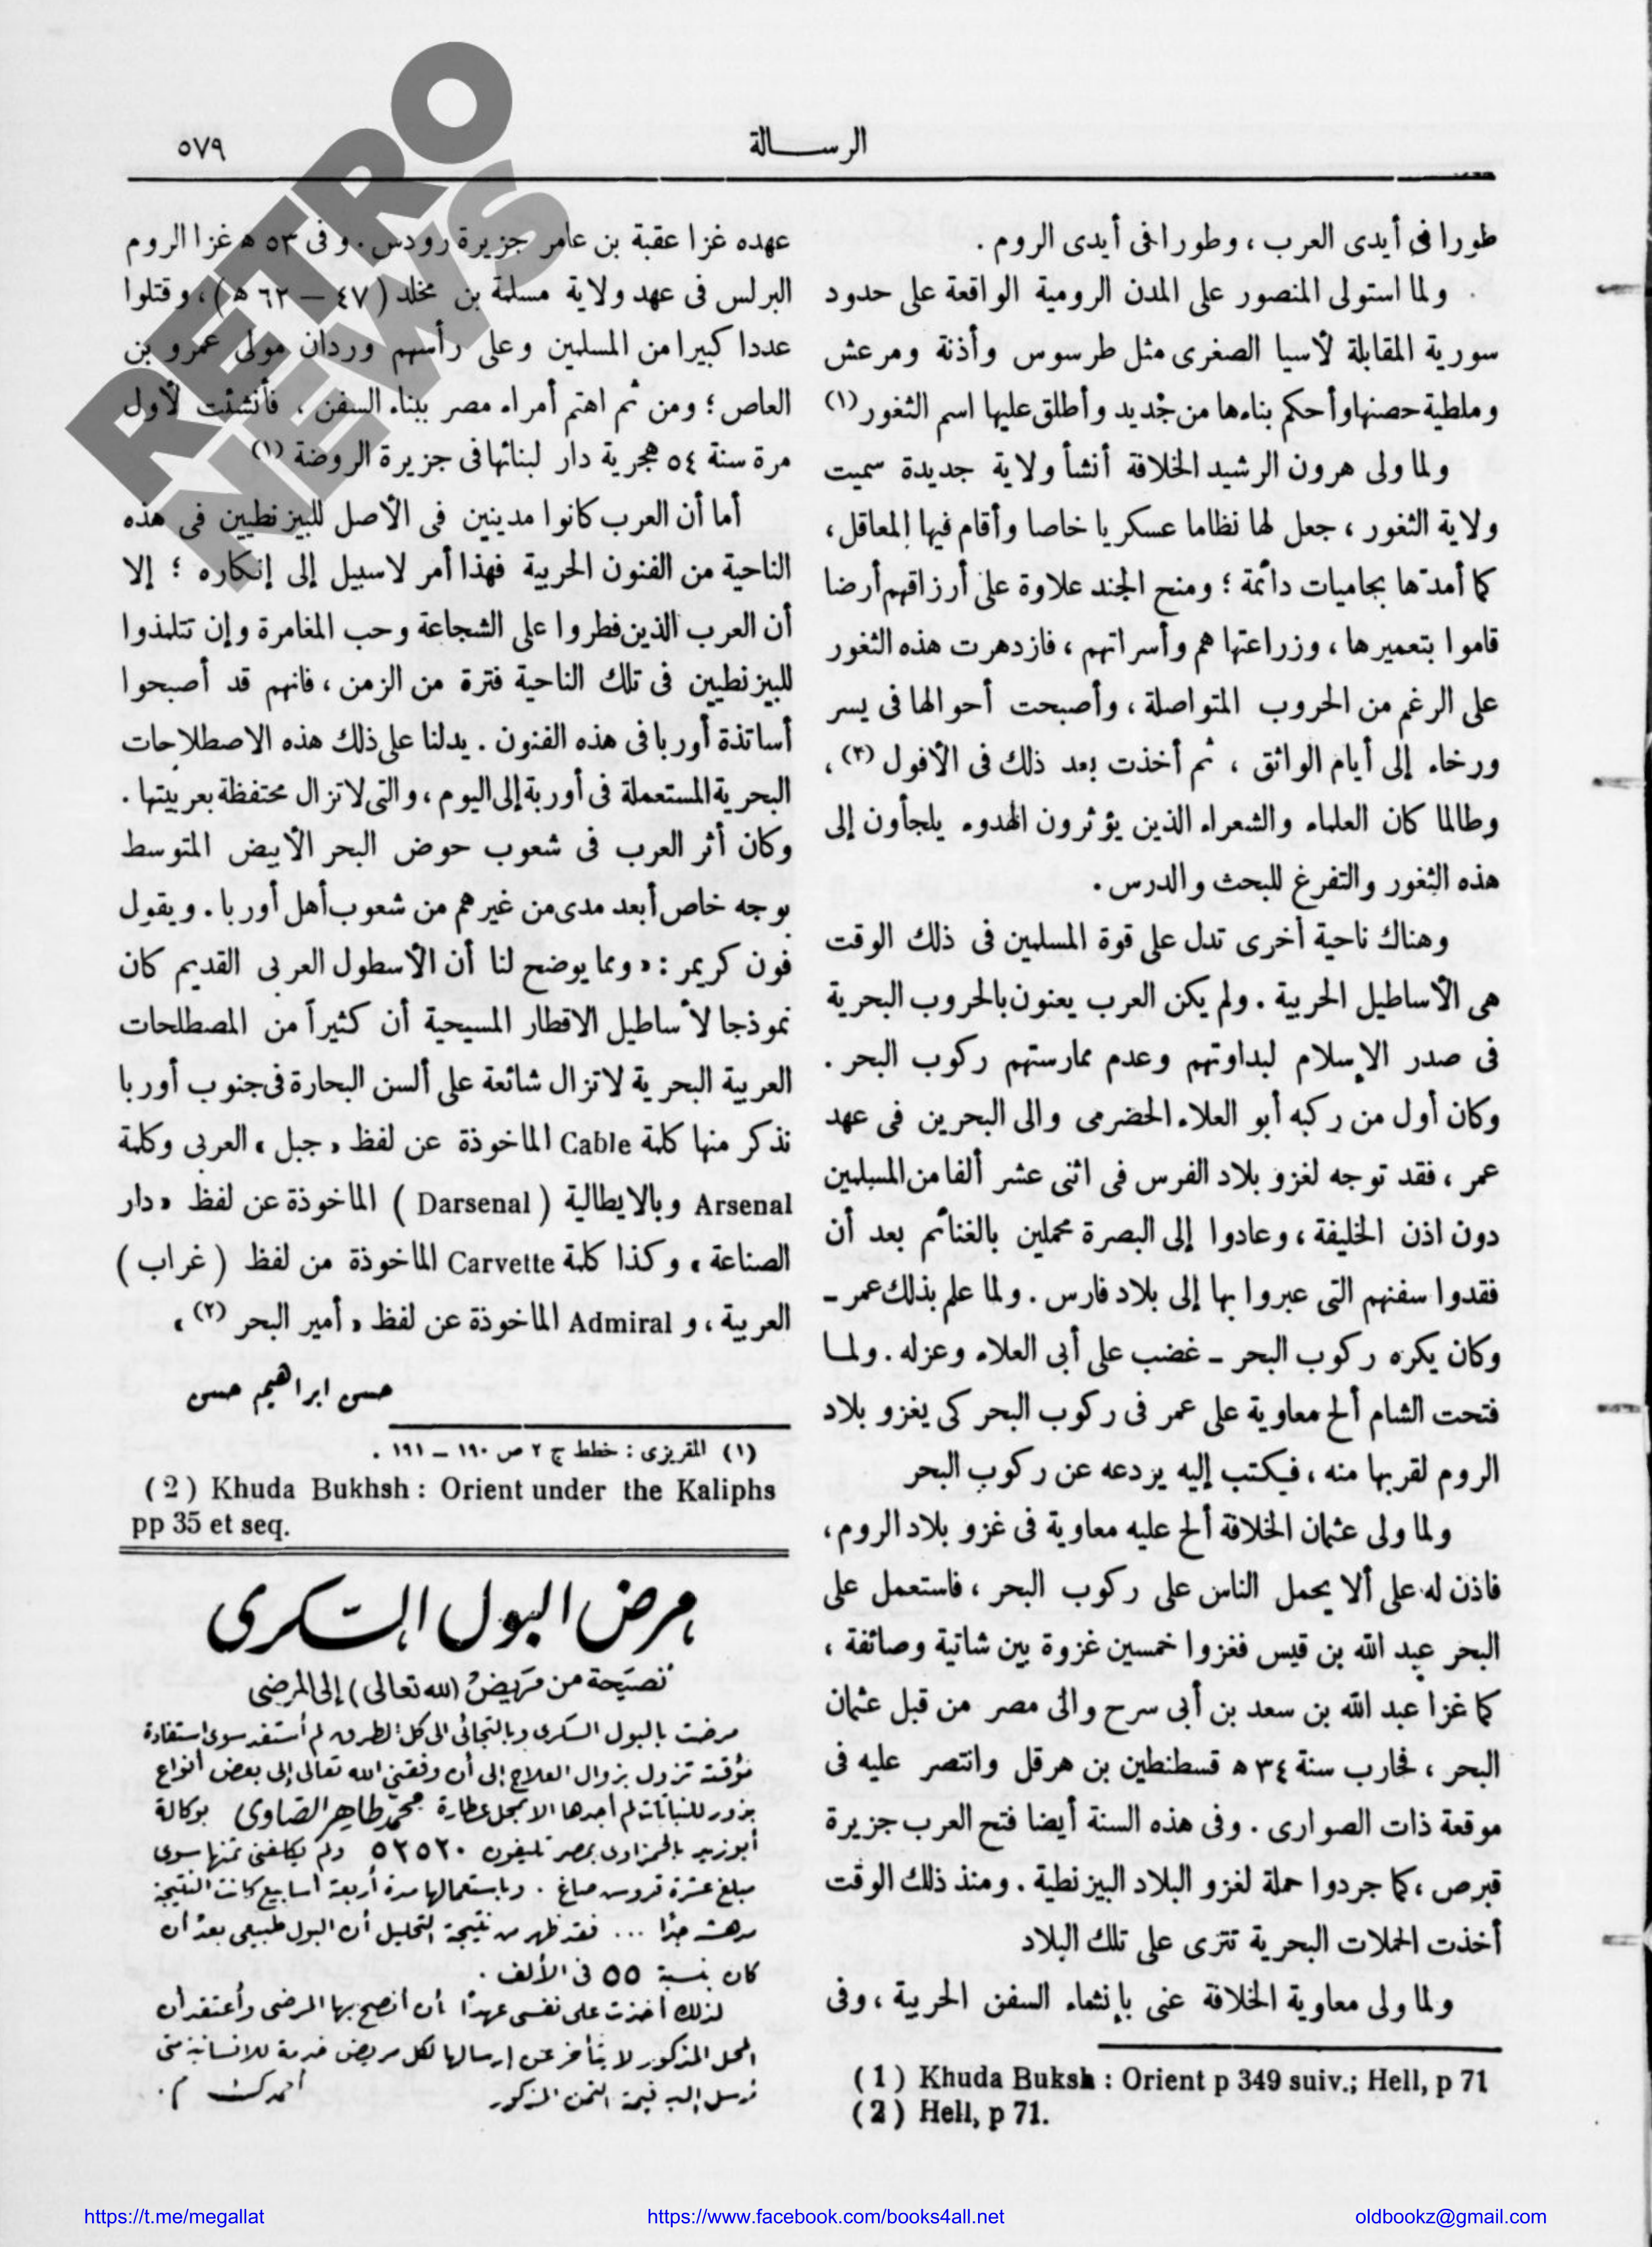 الرسالة
٥٧٩
طورا في أيدى العرب ، وطورا فى أيدى الروم .
ولما استولى المنصور على المدن الرومية الواقعة على حدود
سورية المقابلة لأسيا الصغرى مثل طرسوس وأذنة ومرعش
وملطية حصنها وأحكم بناءها من جديد وأطلق عليها اسم الثغور (١)
ولما ولى هرون الرشيد الخلافة أنشأ ولاية جديدة سميت
ولاية الثغور ، جعل لها نظاما عسكريا خاصا وأقام فيها المعاقل ،
كما أمدتها بحاميات دائمة ؛ ومنح الجند علاوة على أرزاقهم أرضا
قاموا بتعميرها ، وزراعتها هم وأسراتهم ، فازدهرت هذه الثغور
على الرغم من الحروب المتواصلة ، وأصبحت أحوالها فى يسر
ورخاء إلى أيام الواثق ، ثم أخذت بعد ذلك فى الأفول (٢) ،
وطالما كان العلماء والشعراء الذين يؤثرون الهدوء يلجأون إلى
هذه الثغور والتفرغ للبحث والدرس .
وهناك ناحية أخرى تدل على قوة المسلمين فى ذلك الوقت
هى الأساطيل الحربية . ولم يكن العرب يعنون بالحروب البحرية
فى صدر الإسلام لبداوتهم وعدم ممارستهم ركوب البحر .
وكان أول من ركبه أبو العلاء الحضرمى والى البحرين فى عهد
عمر ، فقد توجه لغزو بلاد الفرس فى اثنى عشر ألفا من المسلمين
دون اذن الخليفة ، وعادوا إلى البصرة محملين بالغنائم بعد أن
فقدوا سفنهم التى عبروا بها إلى بلاد فارس . ولما علم بذلك عمر -
وكان يكره ركوب البحر - غضب على أبى العلاء وعزله . ولما
فتحت الشام ألح معاوية على عمر فى ركوب البحر كى يغزو بلاد
الروم لقربها منه ، فيكتب إليه يردعه عن ركوب البحر
ولما ولى عثمان الخلافة ألح عليه معاوية فى غزو بلاد الروم ،
فاذن له على ألا يحمل الناس على ركوب البحر ، فاستعمل على
البحر عبد الله بن قيس فغزوا خمسين غزوة بين شاتية وصائفة ،
كما غزا عبد الله بن سعد بن أبى سرح والى مصر من قبل عثمان
البحر ، فحارب سنة ٣٤ ه قسطنطين بن هرقل وانتصر عليه فى
موقعة ذات الصوارى . وفى هذه السنة أيضا فتح العرب جزيرة
قبرص ، كما جردوا حملة لغزو البلاد البيزنطية . ومنذ ذلك الوقت
أخذت الحملات البحرية تترى على تلك البلاد
ولما ولى معاوية الخلافة عنى بإنشاء السفن الحربية ، وفى
( 1 ) Khuda Buksh : Orient p 349 suiv.; Hell, p 71
( 2 ) Hell, p 71.
عهده غزا عقبة بن عامر جزيرة رودس . وفى ٥٣ ه غزا الروم
البرلس فى عهد ولاية مسلمة بن مخلد ( ٤٧ – ٦٢ ه ) ، وقتلوا
عددا كبيرا من المسلمين وعلى رأسهم وردان مولى عمرو بن
العاص ؛ ومن ثم اهتم أمراء مصر ببناء السفن ، فأنشئت لأول
مرة سنة ٥٤ هجرية دار لبنائها فى جزيرة الروضة (١)
أما أن العرب كانوا مدينين فى الأصل للبيزنطيين فى هذه
الناحية من الفنون الحربية فهذا أمر لاسبيل إلى إنكاره ؛ إلا
أن العرب الذين فطروا على الشجاعة وحب المغامرة وإن تتلمذوا
للبيزنطيين فى تلك الناحية فترة من الزمن ، فانهم قد أصبحوا
أساتذة أوربا فى هذه الفنون . يدلنا على ذلك هذه الاصطلاحات
البحرية المستعملة فى أوربة إلى اليوم ، والتى لاتزال محتفظة بعربيتها .
وكان أثر العرب فى شعوب حوض البحر الأبيض المتوسط
بوجه خاص أبعد مدى من غيرهم من شعوب أهل أوربا . ويقول
فون كريمر : « ومما يوضح لنا أن الأسطول العربى القديم كان
نموذجا لأساطيل الاقطار المسيحية أن كثيراً من المصطلحات
العربية البحرية لاتزال شائعة على ألسن البحارة فى جنوب أوربا
نذكر منها كلمة Cable الماخوذة عن لفظ « جبل » العربى وكلمة
Arsenal وبالايطالية ( Darsenal ) الماخوذة عن لفظ « دار
الصناعة » وكذا كلمة Carvette الماخوذة من لفظ ( غراب )
العربية ، و Admiral الماخوذة عن لفظ « أمير البحر (٢) »
حسن ابراهيم حسن
(١) المقريزى : خطط ج ٢ ص ١٩٠ – ١٩١ .
( 2 ) Khuda Bukhsh : Orient under the Kaliphs
pp 35 et seq.
مرض البول السكرى
نصيحة من مريض (لله تعالى) إلى المرضى
مرضت بالبول السكرى وبالتجائى الى كل الطرق لم أستفد سوى استفادة
مؤقتة تزول بزوال العلاج إلى أن وفقنى الله تعالى إلى بعض أنواع
بزور للنباتات لم أجدها الا بمحل عطارة محمد طاهر الصاوى بوكالة
أبوزيد بالحمزاوى بمصر تليفون ٥٢٥٢٠ ولم يكلفنى ثمنها سوى
مبلغ عشرة قروش صاغ . وباستعمالها مدة أربعة أسابيع كانت النتيجة
مدهشة جدًا ... فقد ظهر من نتيجة التحليل أن البول طبيعى بعد أن
كان بنسبة ٥٥ فى الألف .
لذلك أخذت على نفسى عهدًا بأن أنصح بها المرضى وأعتقد أن
المحل المذكور لا يتأخر عن إرسالها لكل مريض خدمة للانسانية متى
نرسل إليه قيمة الثمن المذكور
RETRO
NEWS
https://t.me/megallat
https://www.facebook.com/books4all.net
oldbookz@gmail.com